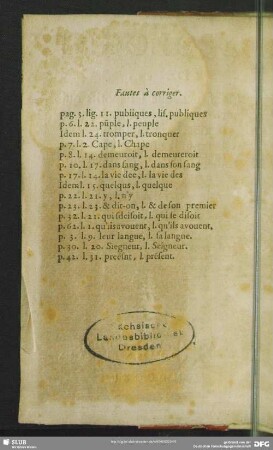 Fautes à corriger.
pag. 5. lig. 11. pubiiques, lis. publiques
p. 6. l. 22. pûple, l. peuple
Idem l. 24. tromper, l. tronquer
p. 7. l. 2. Cape, l. Chape
p. 8. l. 14. demeuroit, l. demeureroit
p. 10. l. 17. dans sang, l. dans son sang
p. 17. l. 14. la vie dee, l. la vie des
Idem l. 15. quelqus, l. quelque
p. 22. l. 21. y, l. n'y
p. 25. l. 23. & dit-on, l. & de son premier
p. 52. l. 22. qui sdeisoit, l. qui se disoit
p. 62. l. 1. qu'ils avouent, l. qu'ils avouent,
p. 3. l. 9. leur langue, l. sa langue.
p. 30. l. 20. Siegneur, l. Seigneur.
p. 42. l. 31. preésnt, l. présent.
Sächsische
Landesbibliothek
Dresden
SLUB
DFG